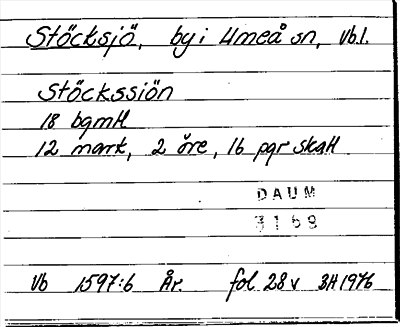 Stöcksjö, by i Umeå sn, Vb.l.
Stöckssiön
18 bgmtl
12 mark, 2 öre, 16 pgr skatt
DAUM
3169
Vb 1597:6 År. fol 28 v BH 1976